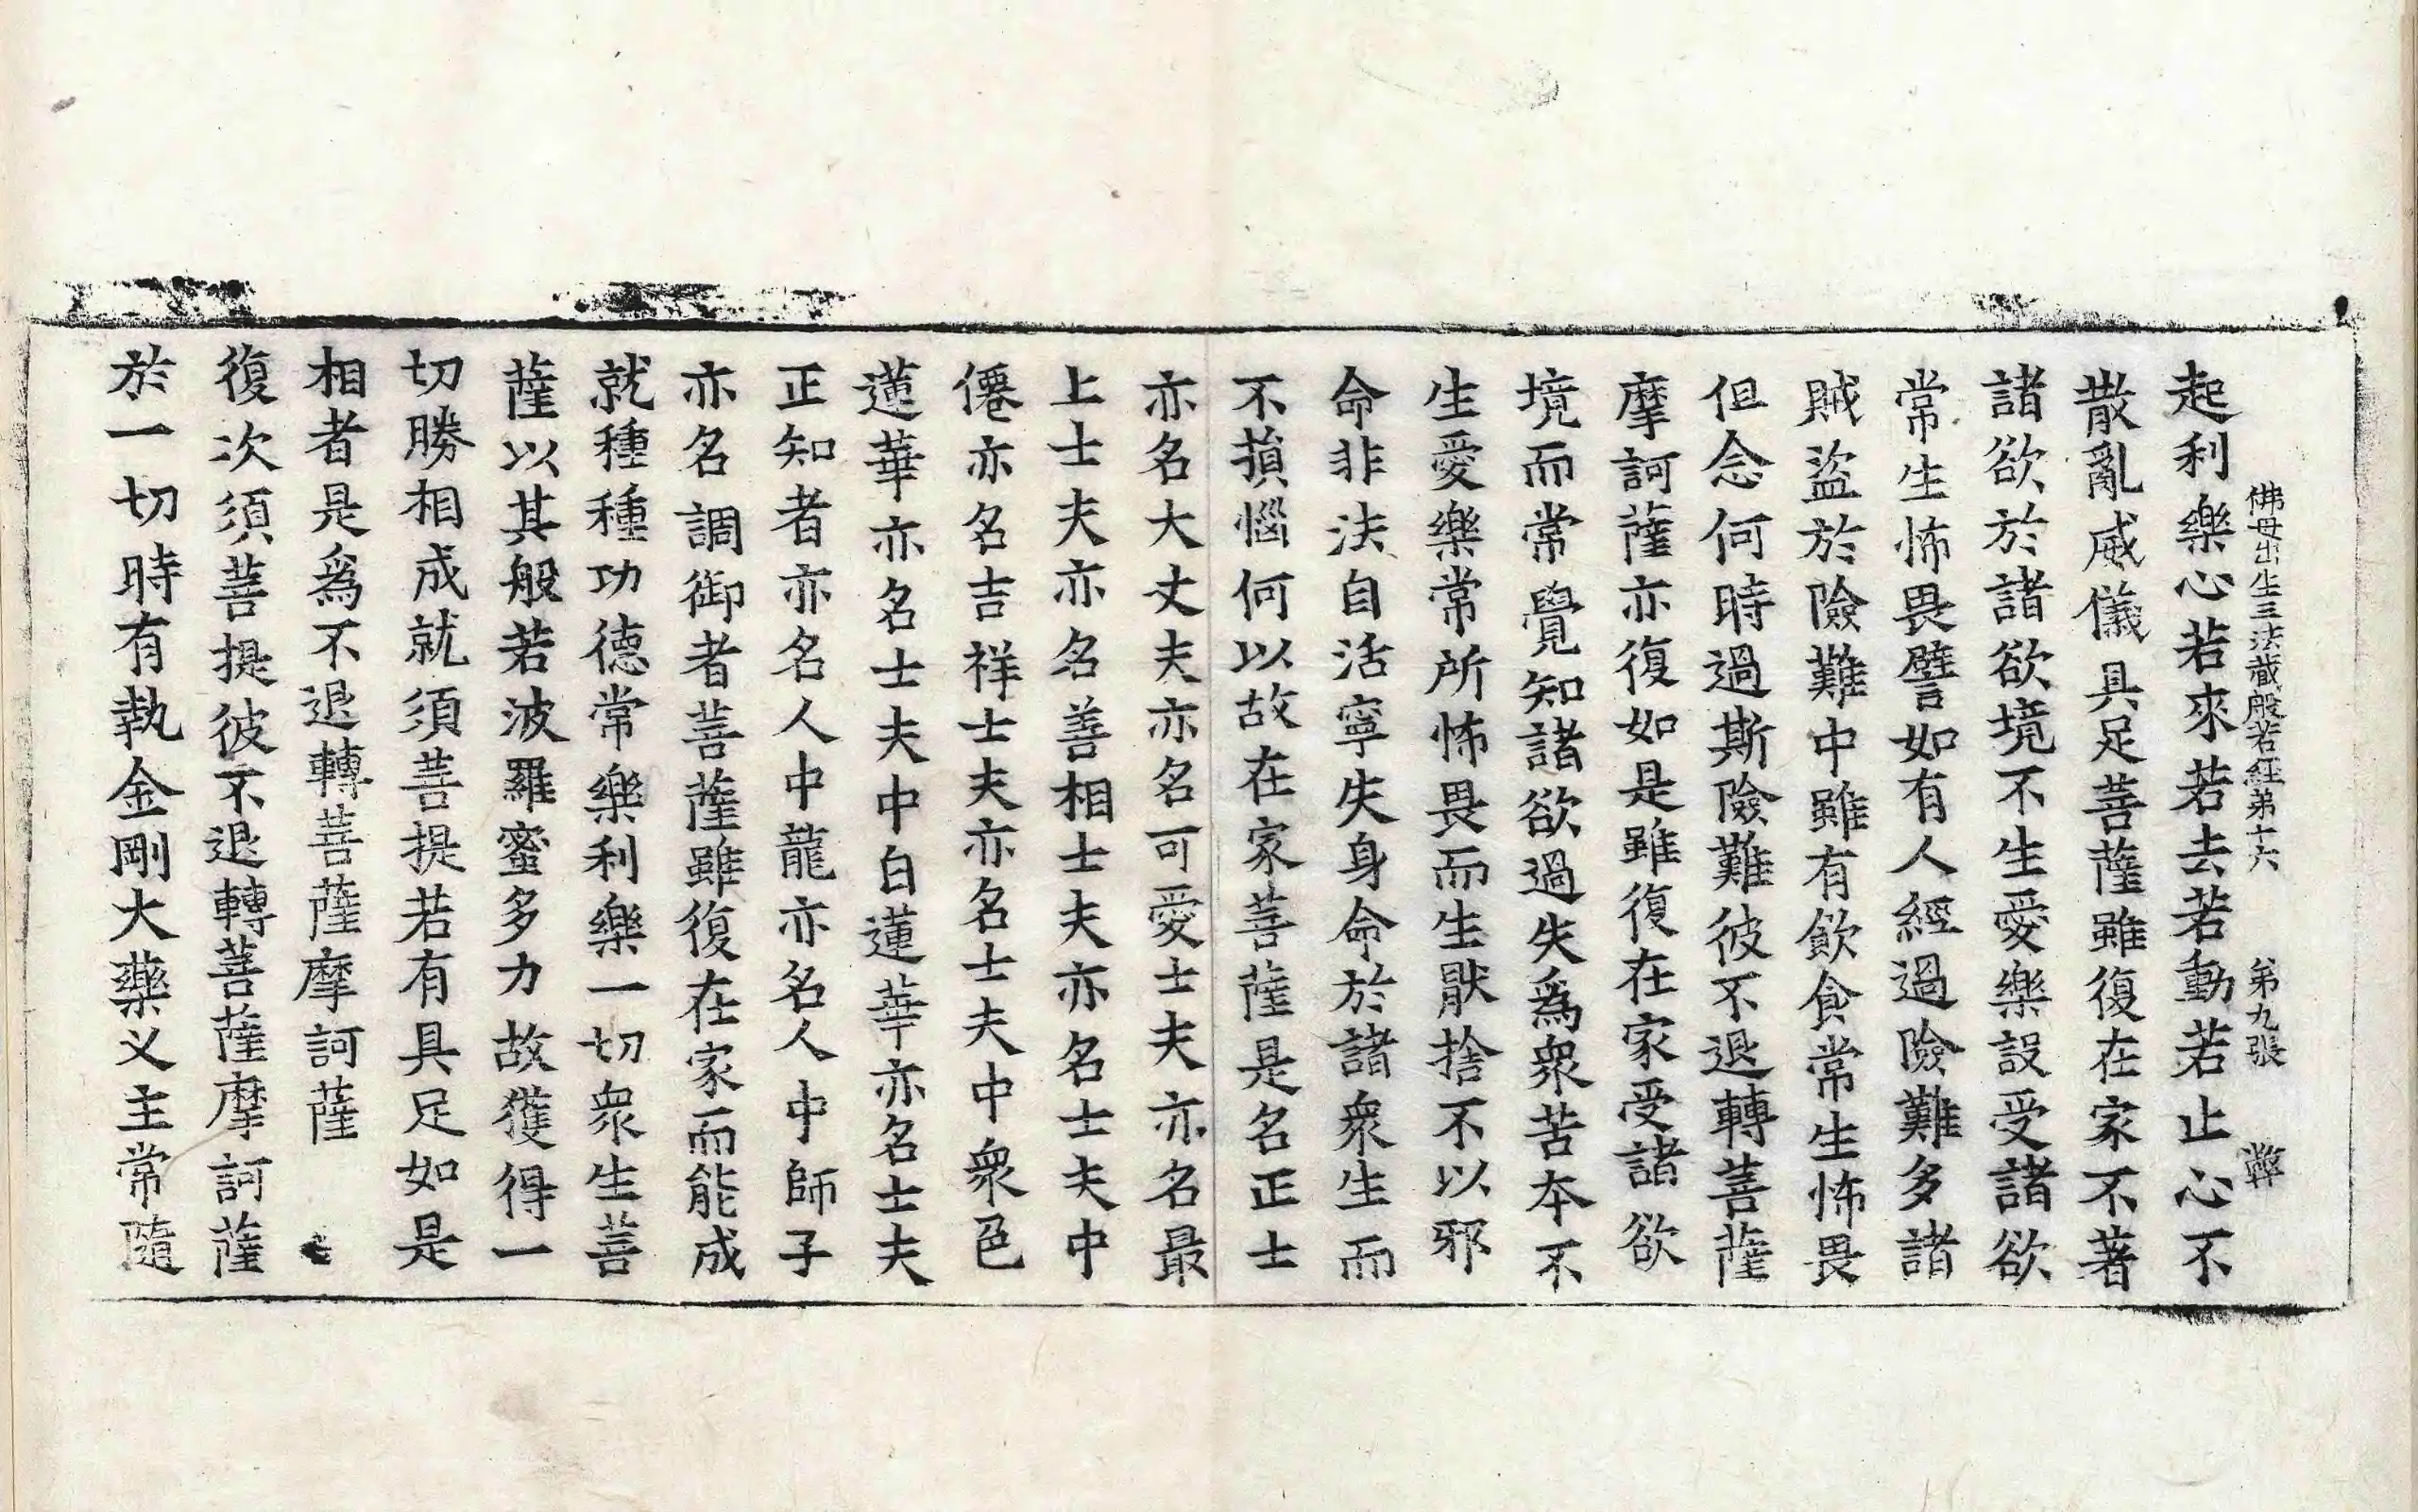 佛母出生三法藏般若經第十六 第九張 弊
起利樂心若來若去若動若止心不
散亂威儀具足菩薩雖復在家不著
諸欲於諸欲境不生愛樂設受諸欲
常生怖畏譬如有人經過險難多諸
賊盜於險難中雖有飮食常生怖畏
但念何時過斯險難彼不退轉菩薩
摩訶薩亦復如是雖復在家受諸欲
境而常覺知諸欲過失爲衆苦本不
生愛樂常所怖畏而生猒捨不以邪
命非法自活寧失身命於諸衆生而
不損惱何以故在家菩薩是名正士
亦名大丈夫亦名可愛士夫亦名最
上士夫亦名善相士夫亦名士夫中
僊亦名吉祥士夫亦名士夫中衆色
蓮華亦名士夫中白蓮華亦名士夫
正知者亦名人中龍亦名人中師子
亦名調御者菩薩雖復在家而能成
就種種功德常樂利樂一切衆生菩
薩以其般若波羅蜜多力故獲得一
切勝相成就須菩提若有具足如是
相者是爲不退轉菩薩摩訶薩
復次須菩提彼不退轉菩薩摩訶薩
於一切時有執金剛大藥义主常隨